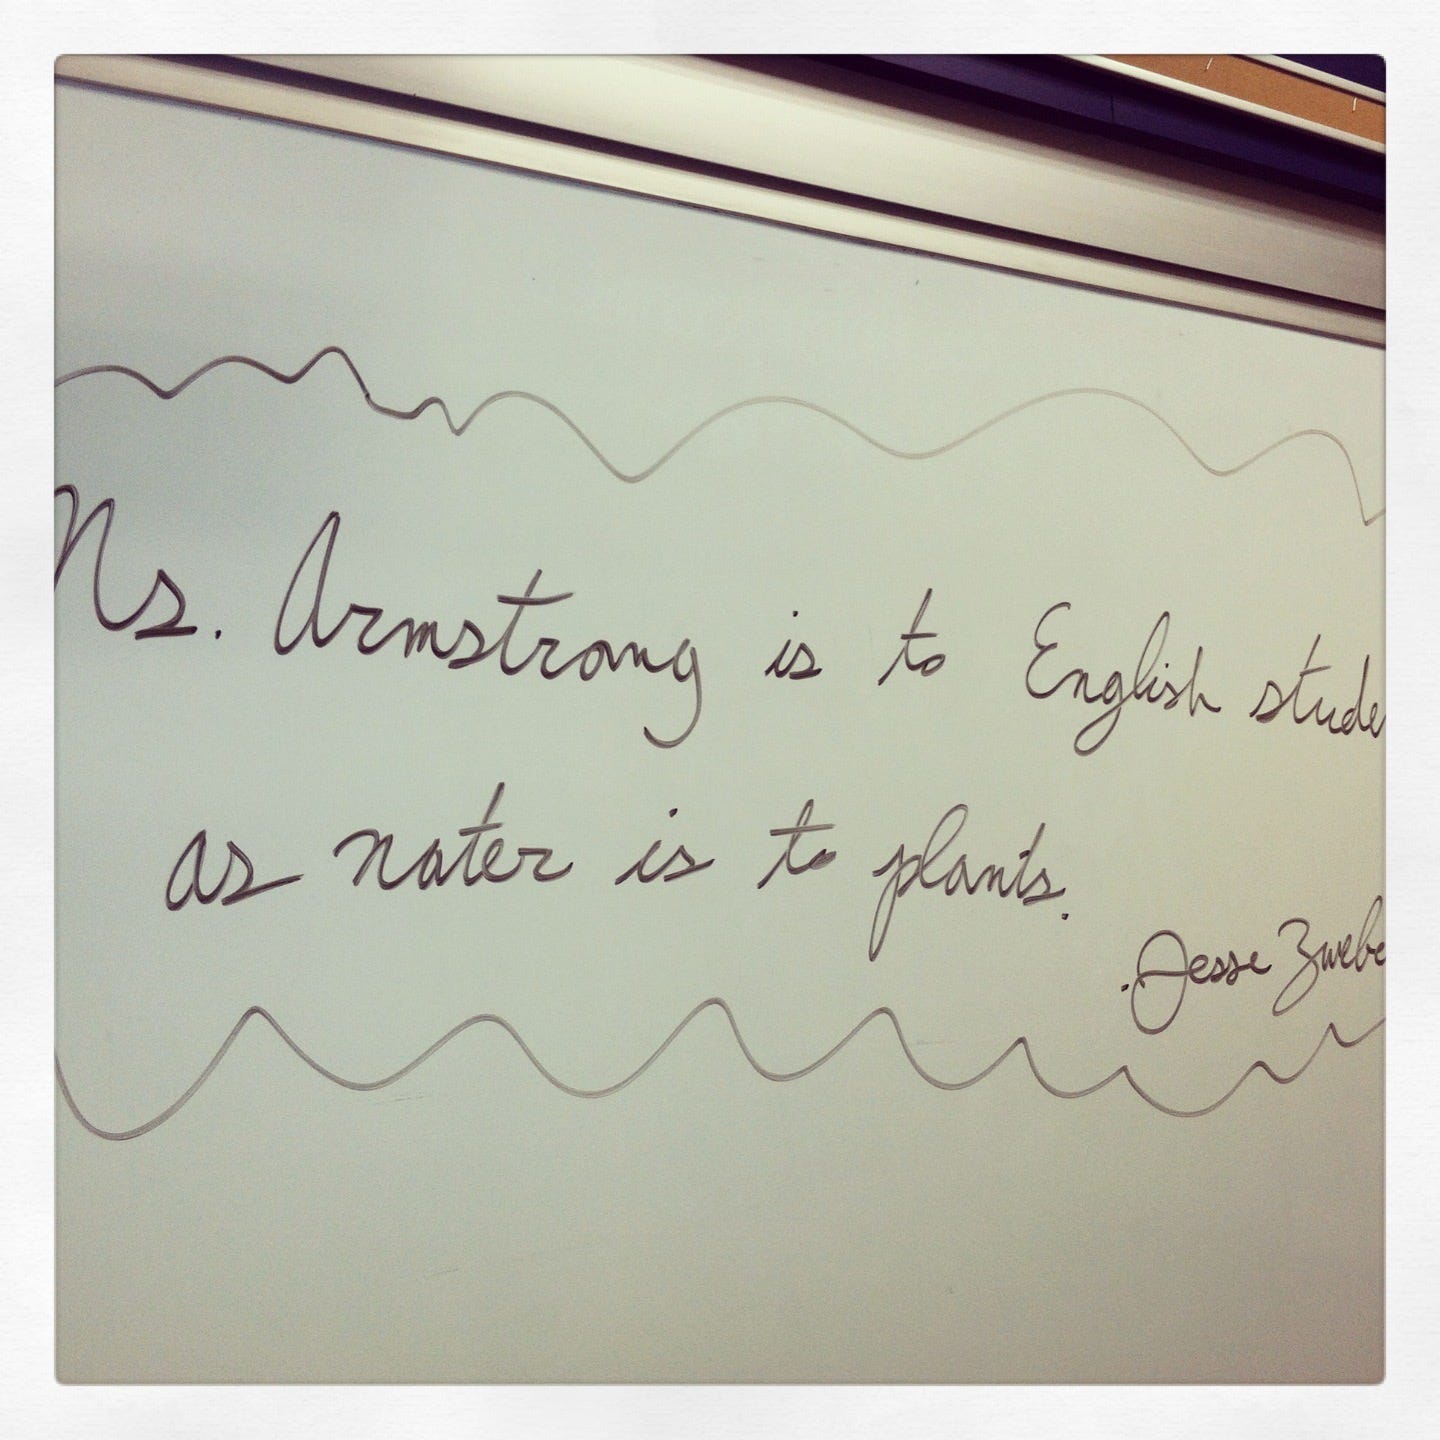 Ms. Armstrong is to English stude
as water is to plants.
. Jesse Zwebe